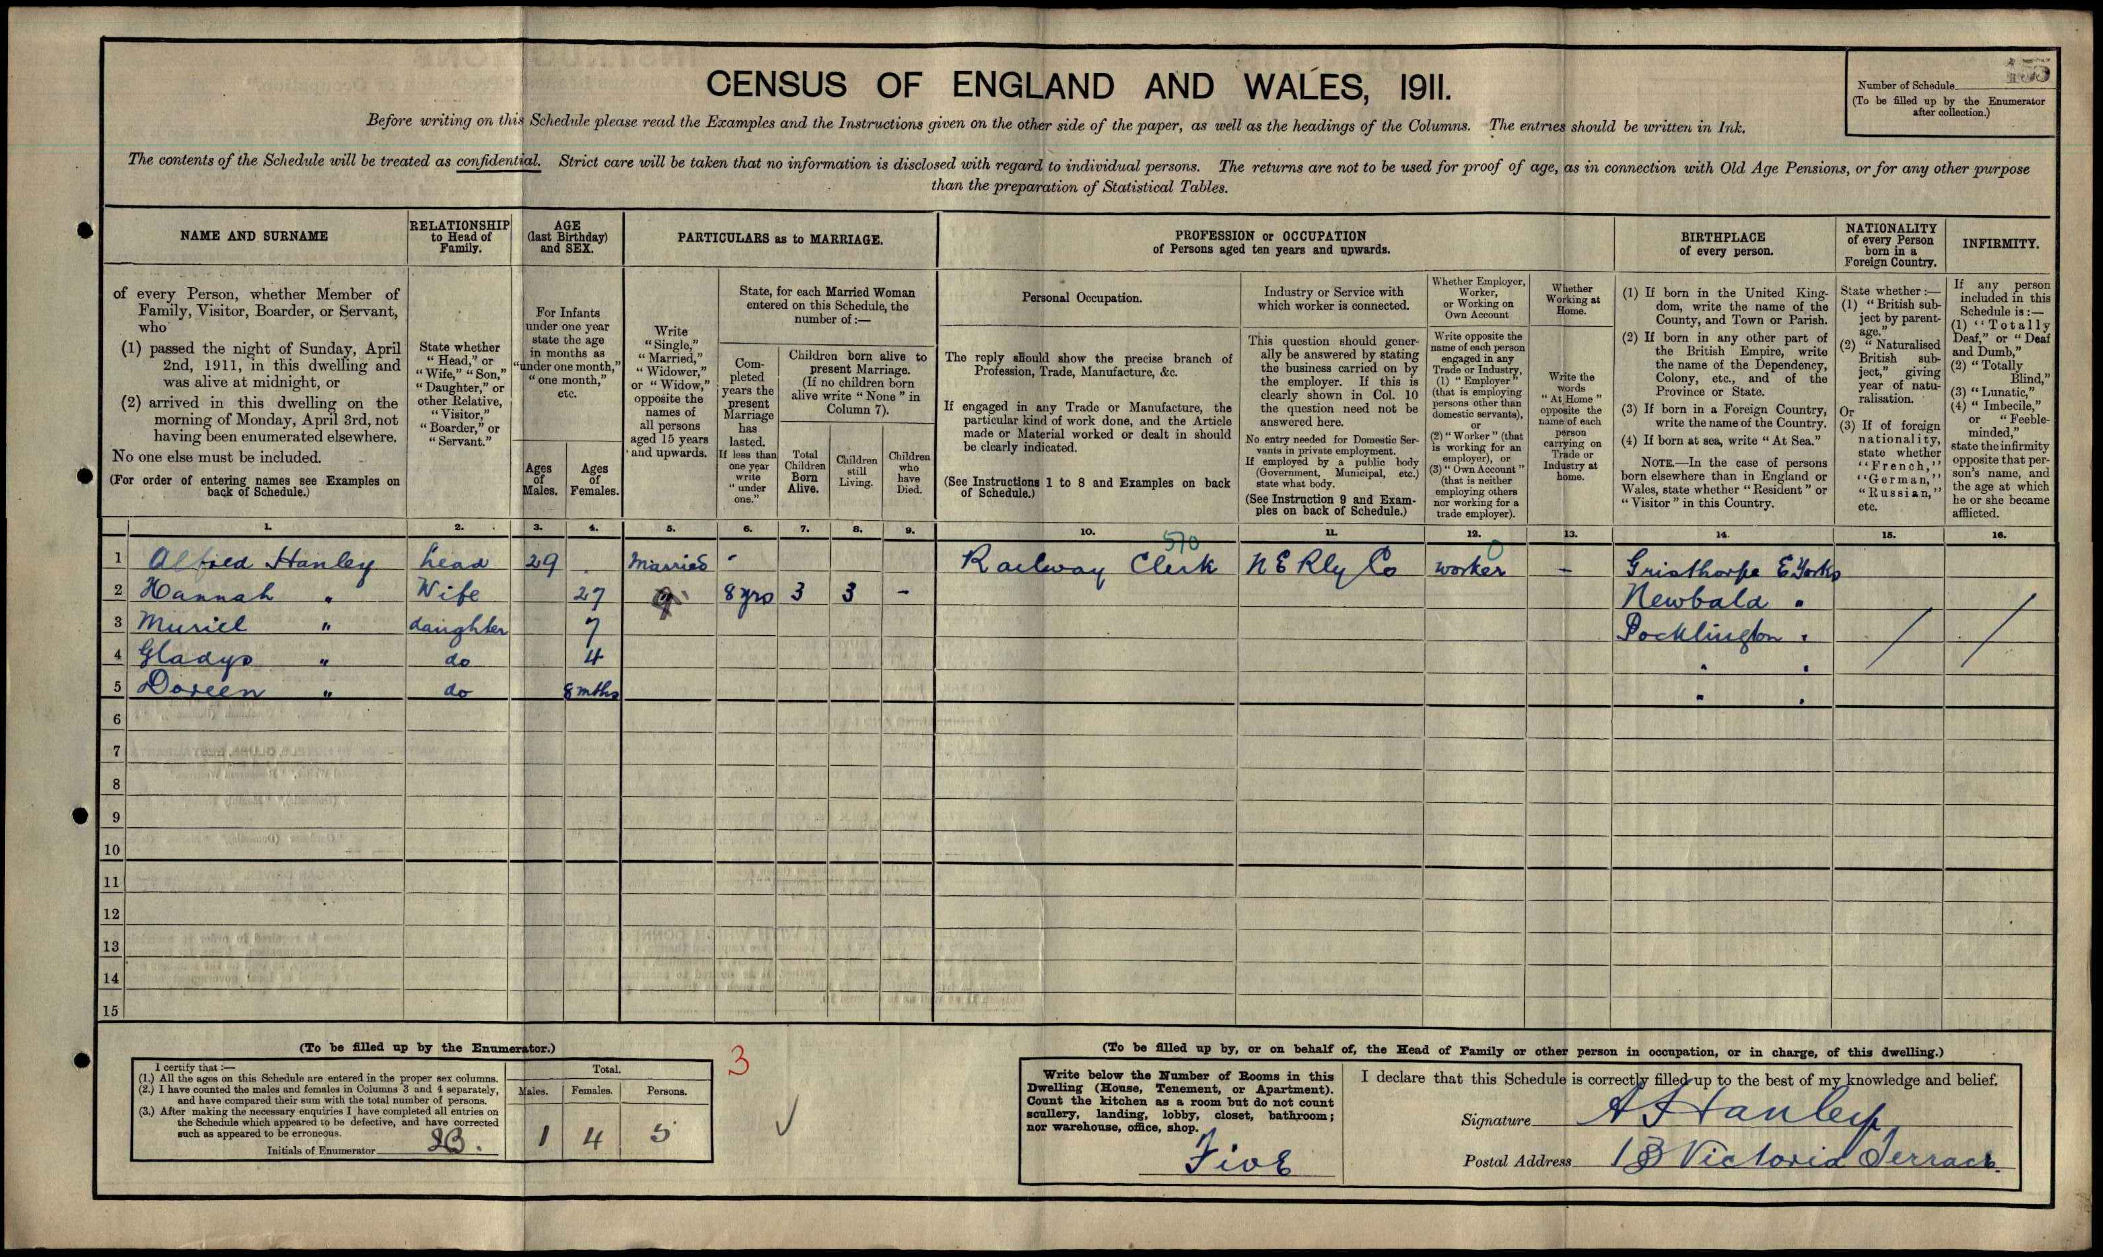 CENSUS OF ENGLAND AND WALES, 1911.
Number of Schedule 155
(To be filled up by the Enumerator
after collection.)
Before writing on this Schedule please read the Examples and the Instructions given on the other side of the paper, as well as the headings of the Columns. The entries should be written in Ink.
The contents of the Schedule will be treated as confidential. Strict care will be taken that no information is disclosed with regard to individual persons. The returns are not to be used for proof of age, as in connection with Old Age Pensions, or for any other purpose
than the preparation of Statistical Tables.
NAME AND SURNAME
of every Person, whether Member of
Family, Visitor, Boarder, or Servant,
who
(1) passed the night of Sunday, April
2nd, 1911, in this dwelling and
was alive at midnight, or
(2) arrived in this dwelling on the
morning of Monday, April 3rd, not
having been enumerated elsewhere.
No one else must be included.
(For order of entering names see Examples on
back of Schedule.)
RELATIONSHIP
to Head of
Family.
State whether
"Head," or
"Wife," "Son,"
"Daughter," or
other Relative,
"Visitor,"
"Boarder," or
"Servant."
AGE
(last Birthday)
and SEX.
For Infants
under one year
state the age
in months as
"under one month,"
"one month,"
etc.
Ages
of
Males.
Ages
of
Females.
PARTICULARS as to MARRIAGE.
Write
"Single,"
"Married,"
"Widower,"
or "Widow,"
opposite the
names of
all persons
aged 15 years
and upwards.
State, for each Married Woman
entered on this Schedule, the
number of:—
Com-
pleted
years the
present
Marriage
has
lasted.
If less than
one year
write
"under
one."
Children born alive to
present Marriage.
(If no children born
alive write "None" in
Column 7).
Total
Children
Born
Alive.
Children
still
Living.
Children
who
have
Died.
PROFESSION or OCCUPATION
of Persons aged ten years and upwards.
Personal Occupation.
The reply should show the precise branch of
Profession, Trade, Manufacture, &c.
If engaged in any Trade or Manufacture, the
particular kind of work done, and the Article
made or Material worked or dealt in should
be clearly indicated.
(See Instructions 1 to 8 and Examples on back
of Schedule.)
Industry or Service with
which worker is connected.
This question should gener-
ally be answered by stating
the business carried on by
the employer. If this is
clearly shown in Col. 10
the question need not be
answered here.
No entry needed for Domestic Ser-
vants in private employment.
If employed by a public body
(Government, Municipal, etc.)
state what body.
(See Instruction 9 and Exam-
ples on back of Schedule.)
Whether Employer,
Worker,
or Working on
Own Account
Write opposite the
name of each person
engaged in any
Trade or Industry,
(1) "Employer"
(that is employing
persons other than
domestic servants),
or
(2) "Worker" (that
is working for an
employer), or
(3) "Own Account"
(that is neither
employing others
nor working for a
trade employer).
Whether
Working at
Home.
Write the
words
"At Home"
opposite the
name of each
person
carrying on
Trade or
Industry at
home.
BIRTHPLACE
of every person.
(1) If born in the United King-
dom, write the name of the
County, and Town or Parish.
(2) If born in any other part of
the British Empire, write
the name of the Dependency,
Colony, etc., and of the
Province or State.
(3) If born in a Foreign Country,
write the name of the Country.
(4) If born at sea, write "At Sea."
NOTE.—In the case of persons
born elsewhere than in England or
Wales, state whether "Resident" or
"Visitor" in this Country.
NATIONALITY
of every Person
born in a
Foreign Country.
State whether:—
(1) "British sub-
ject by parent-
age."
(2) "Naturalised
British sub-
ject," giving
year of natu-
ralisation.
Or
(3) If of foreign
nationality,
state whether
"French,"
"German,"
"Russian,"
etc.
INFIRMITY.
If any person
included in this
Schedule is:—
(1) "Totally
Deaf," or "Deaf
and Dumb,"
(2) "Totally
Blind,"
(3) "Lunatic,"
(4) "Imbecile,"
or "Feeble-
minded,"
state the infirmity
opposite that per-
son's name, and
the age at which
he or she became
afflicted.
1. 2. 3. 4. 5. 6. 7. 8. 9. 10. 11. 12. 13. 14. 15. 16.
570 0
1 Alfred Hanley head 29 Married - Railway Clerk N E Rly Co worker - Gristhorpe E Yorks
2 Hannah " Wife 27 " 8 yrs 3 3 - Newbald "
3 Muriel " daughter 7 Pocklington "
4 Gladys " do 4 " "
5 Doreen " do 8 mths " "
6
7
8
9
10
11
12
13
14
15
(To be filled up by the Enumerator.)
I certify that:—
(1.) All the ages on this Schedule are entered in the proper sex columns.
(2.) I have counted the males and females in Columns 3 and 4 separately,
and have compared their sum with the total number of persons.
(3.) After making the necessary enquiries I have completed all entries on
the Schedule which appeared to be defective, and have corrected
such as appeared to be erroneous.
Initials of Enumerator
Total.
Males. Females. Persons.
1 4 5
3
(To be filled up by, or on behalf of, the Head of Family or other person in occupation, or in charge, of this dwelling.)
Write below the Number of Rooms in this
Dwelling (House, Tenement, or Apartment).
Count the kitchen as a room but do not count
scullery, landing, lobby, closet, bathroom;
nor warehouse, office, shop.
Five
I declare that this Schedule is correctly filled up to the best of my knowledge and belief.
Signature A Hanley
Postal Address 13 Victoria Terrace.